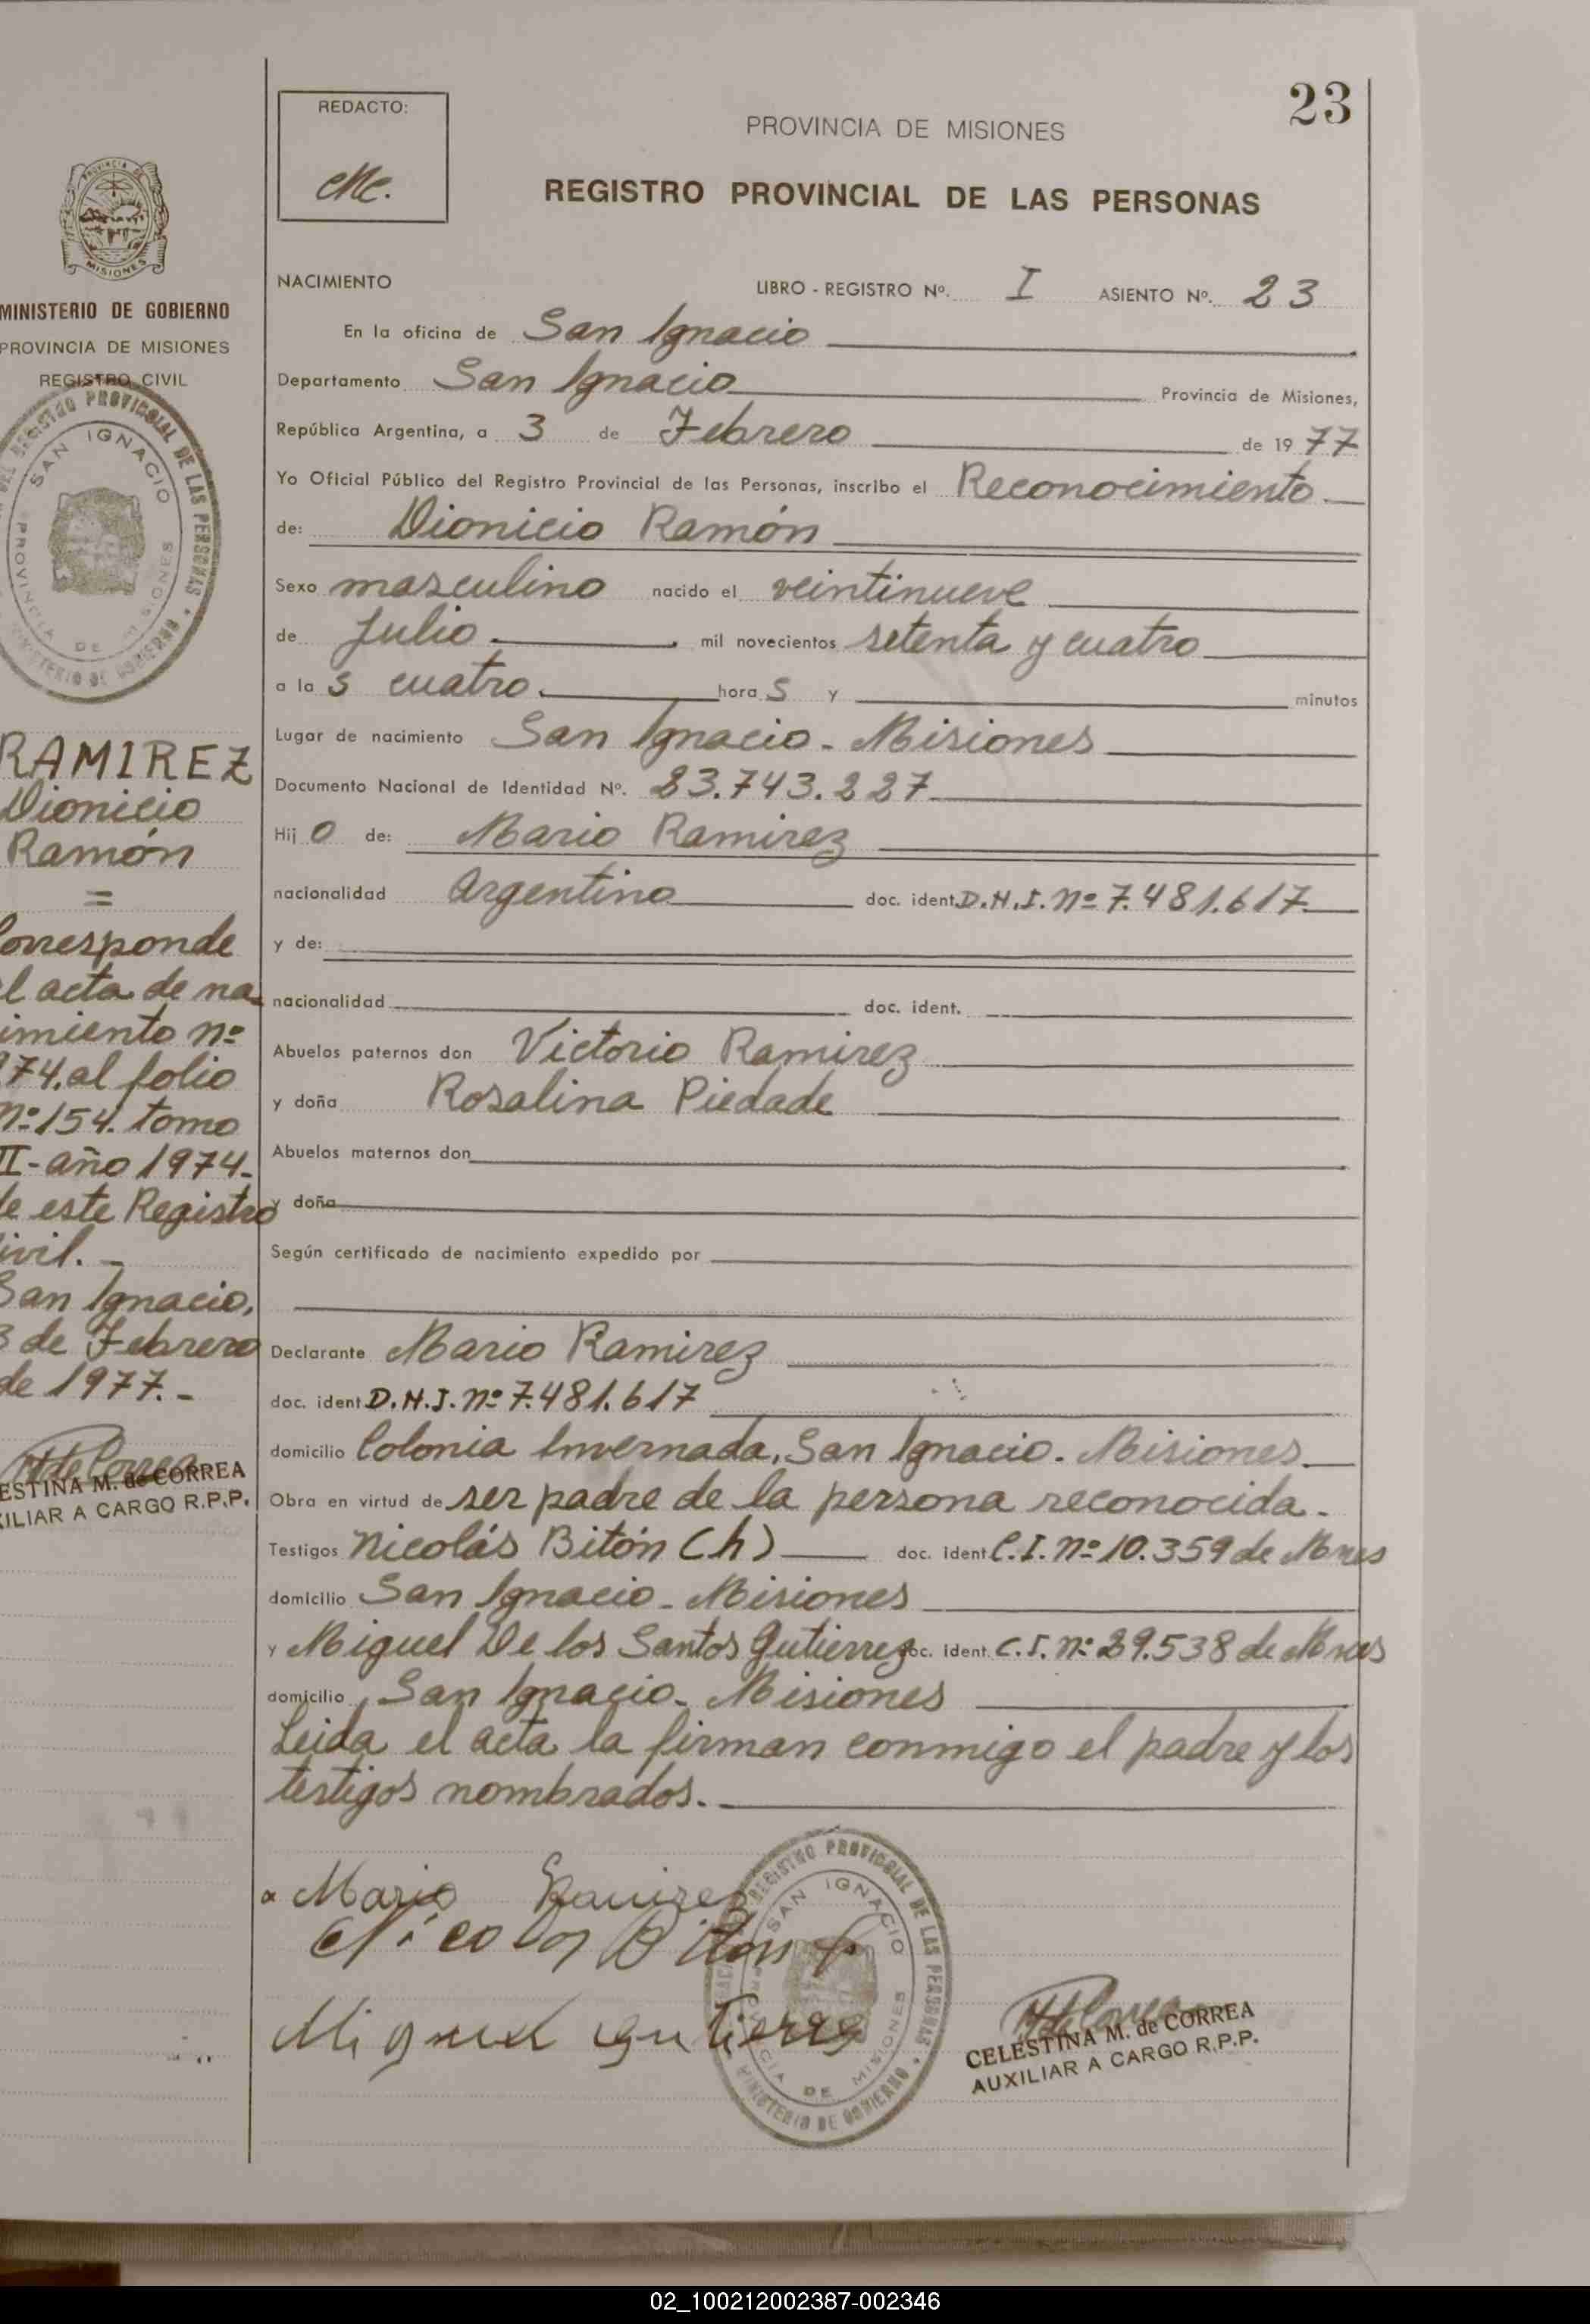 23
REDACTO:
PROVINCIA DE MISIONES
REGISTRO PROVINCIAL DE LAS PERSONAS
NACIMIENTO LIBRO - REGISTRO Nº. I ASIENTO Nº. 23
En la oficina de San Ignacio
Departamento San Ignacio Provincia de Misiones,
República Argentina, a 3 de Febrero de 1977
Yo Oficial Público del Registro Provincial de las Personas, inscribo el Reconocimiento
de: Dionicio Ramón
Sexo masculino nacido el veintinueve
de Julio mil novecientos setenta y cuatro
a las cuatro. horas y minutos
Lugar de nacimiento San Ignacio - Misiones
Documento Nacional de Identidad Nº. 23.743.227
Hijo de: Mario Ramirez
nacionalidad Argentina doc. ident. D.N.I. nº 7.481.617
y de:
nacionalidad doc. ident.
Abuelos paternos don Victorio Ramirez
y doña Rosalina Piedade
Abuelos maternos don
y doña
Según certificado de nacimiento expedido por
Declarante Mario Ramirez
doc. ident D.N.I. nº 7.481.617
domicilio Colonia Invernada, San Ignacio - Misiones
Obra en virtud de ser padre de la persona reconocida.
Testigos Nicolás Bitón (h) doc. ident C.I. nº 10.359 de Mnes
domicilio San Ignacio - Misiones
y Miguel De los Santos Gutierrez doc. ident. C.I. nº 29.538 de Mnes
domicilio San Ignacio - Misiones
Leida el acta la firman conmigo el padre y los
testigos nombrados.
Mario Ramirez
Nicolas Biton
Miguel Gutierre
REGISTRO PROVINCIAL DE LAS PERSONAS
SAN IGNACIO
PROVINCIA DE MISIONES
MINISTERIO DE GOBIERNO
CELESTINA M. de CORREA
AUXILIAR A CARGO R.P.P.
PROVINCIA DE
MISIONES
MINISTERIO DE GOBIERNO
PROVINCIA DE MISIONES
REGISTRO CIVIL
DEL REGISTRO PROVINCIAL DE LAS PERSONAS
SAN IGNACIO
PROVINCIA DE MISIONES
MINISTERIO DE GOBIERNO
RAMIREZ
Dionicio
Ramón
=
orresponde
l acta de na-
imiento nº
74. al folio
nº 154. tomo
II - año 1974.
de este Registro
ivil. -
San Ignacio,
3 de Febrero
de 1977. -
ESTINA M. de CORREA
XILIAR A CARGO R.P.P.
02_100212002387-002346